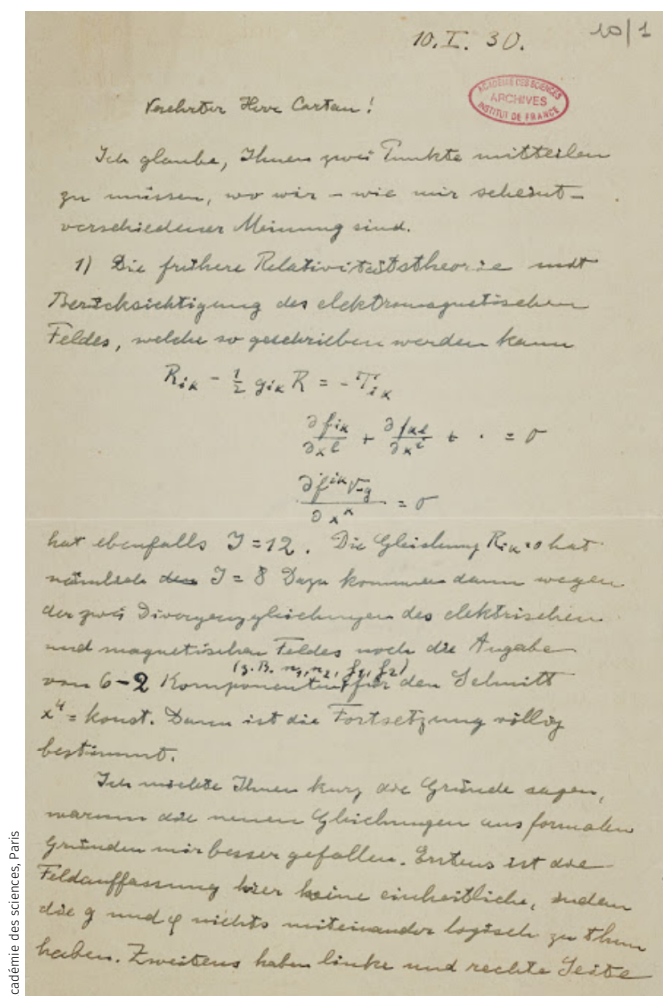 10.I.30.
10/1
ACADÉMIE DES SCIENCES
ARCHIVES
INSTITUT DE FRANCE
Verehrter Herr Cartan!
Ich glaube, Ihnen zwei Punkte mitteilen
zu müssen, wo wir – wie mir scheint –
verschiedener Meinung sind.
1) Die frühere Relativitätstheorie mit
Berücksichtigung des elektromagnetischen
Feldes, welche so geschrieben werden kann
R_{iκ} - ½ g_{iκ} R = - T_{iκ}
∂f_{iκ}/∂x^l + ∂f_{κl}/∂x^i + · = 0
∂f^{iκ}√-g/∂x^κ = 0
hat ebenfalls J = 12. Die Gleichung R_{iκ}=0 hat
nämlich J = 8 Dazu kommen dann wegen
der zwei Divergenzgleichungen des elektrischen
und magnetischen Feldes noch die Angabe
(z.B. f_1, f_2)
von 6-2 Komponenten für den Schnitt
x^4 = konst. Dann ist die Fortsetzung völlig
bestimmt.
Ich möchte Ihnen kurz die Gründe sagen,
warum die neuen Gleichungen aus formalen
Gründen mir besser gefallen. Erstens ist die
Feldauffassung hier keine einheitliche, indem
die g und φ nichts miteinander logisch zu thun
haben. Zweitens haben linke und rechte Seite
cadémie des sciences, Paris